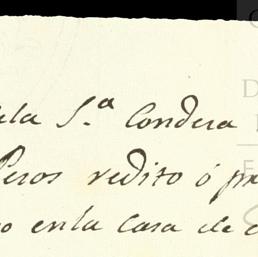 ela S.ª Condera
Pesos redito ó pr
o en la Casa de